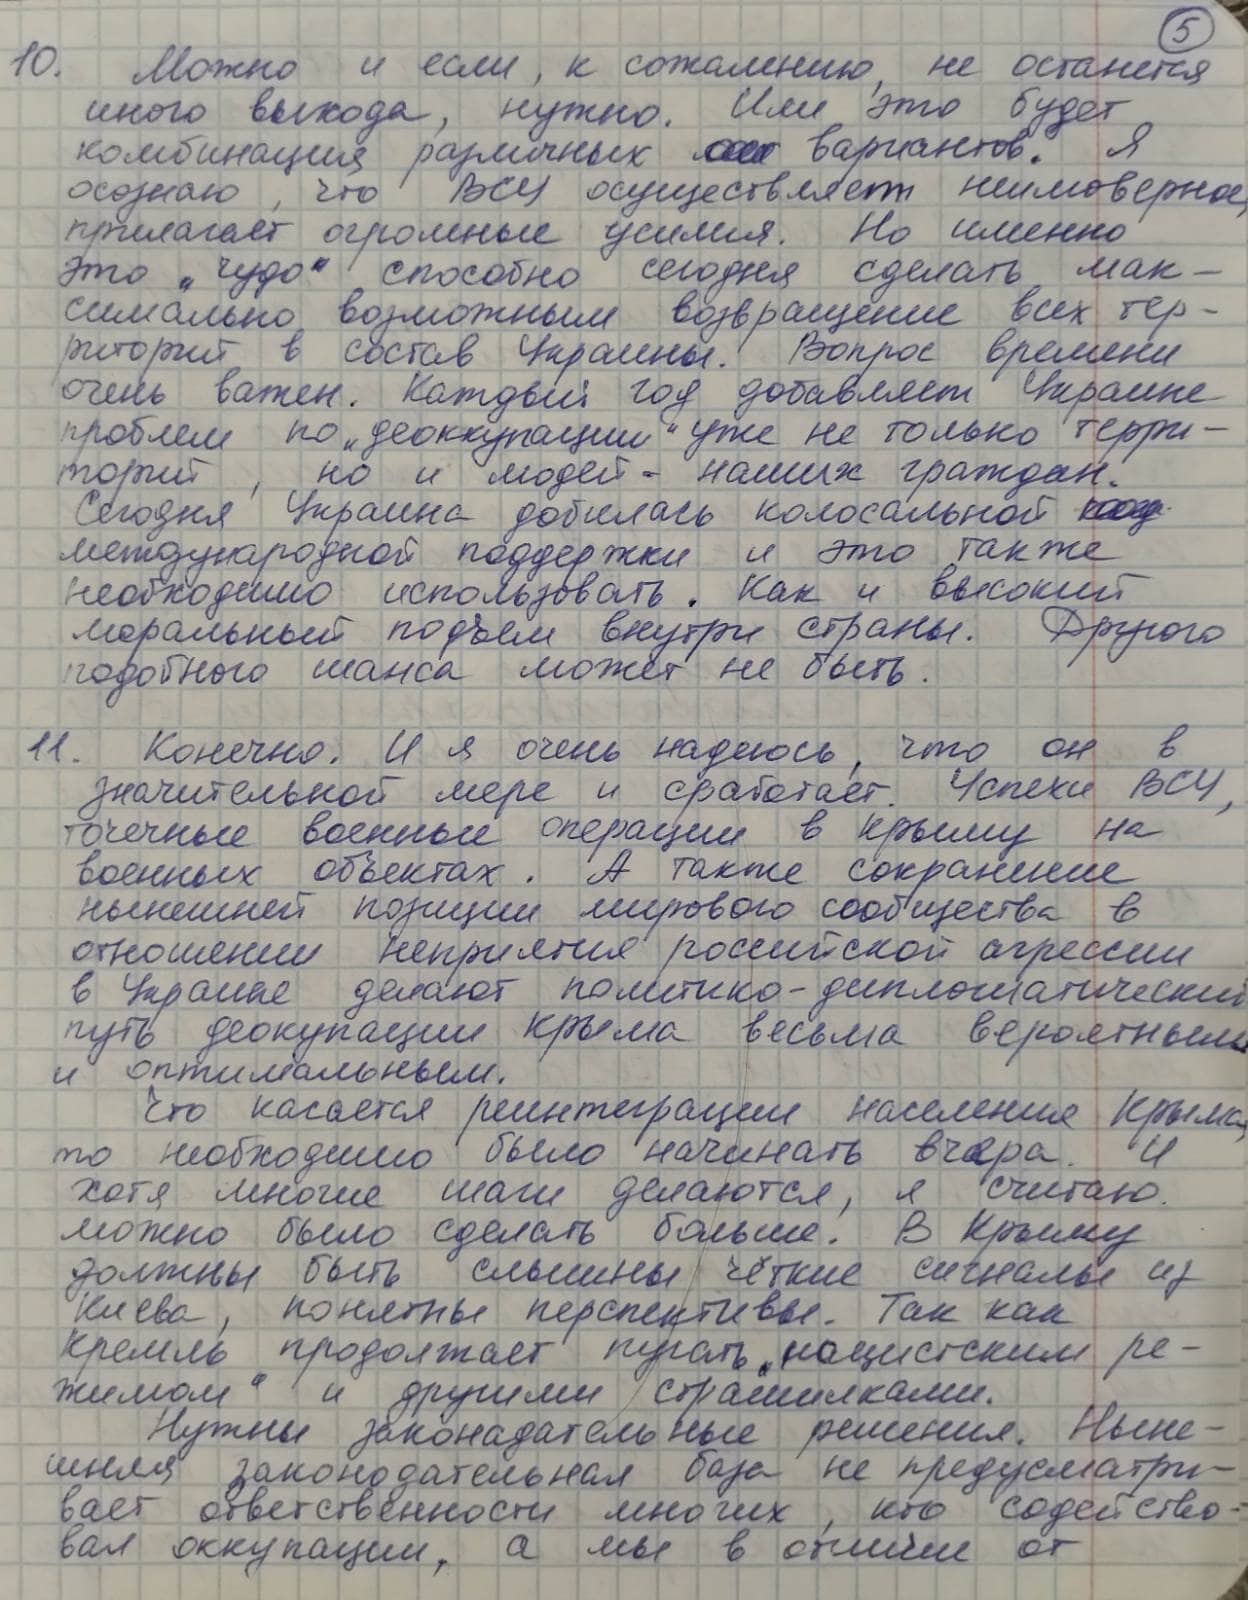 5
10. Можно и если, к сожалению, не останется
иного выхода, нужно. Или это будет
комбинация различных вариантов. Я
осознаю, что ВСУ осуществляет неимоверное,
прилагает огромные усилия. Но именно
это „чудо" способно сегодня сделать мак-
симально возможным возвращение всех тер-
риторий в состав Украины. Вопрос времени
очень важен. Каждый год добавляет Украине
проблем по „деоккупации" уже не только терри-
торий, но и людей - наших граждан.
Сегодня Украина добилась колосальной
международной поддержки и это также
необходимо использовать. Как и высокий
моральный подъём внутри страны. Другого
подобного шанса может не быть.
11. Конечно. И я очень надеюсь, что он в
значительной мере и сработает. Успехи ВСУ,
точечные военные операции в Крыму на
военных объектах. А также сохранение
нынешней позиции мирового сообщества в
отношении неприятия российской агрессии
в Украине делают политико-дипломатический
путь деокупации Крыма весьма вероятным
и оптимальным.
Что касается реинтеграции населения Крыма,
то необходимо было начинать вчера. И
хотя многие шаги делаются, я считаю.
можно было сделать больше. В Крыму
должны быть слышны чёткие сигналы из
Киева, понятны перспективы. Так как
Кремль продолжает пугать „нацистским ре-
жимом" и другими страшилками.
Нужны законадательные решения. Ныне-
шняя законодательная база не предусматри-
вает ответственности многих, кто содейство-
вал оккупации, а мы в отличие от